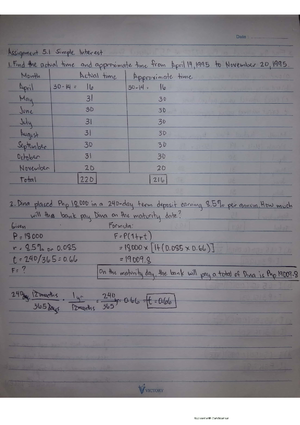 Date
Assignment 3.1 Simple Interest
1. Find the actual time and approximate time from April 14, 1995 to November 20, 1995.
Month Actual time Approximate time
April 30-14 = 16 30-14 = 16
May 31 30
June 30 30
July 31 30
August 31 30
September 30 30
October 31 30
November 20 20
Total 220 216
2. Dina placed Php 18,000 in a 240-day term deposit earning 8.5% per annum. How much
will the bank pay Dina on the maturity date?
Given: Formula:
P = 18,000 F = P(1+rt)
r = 8.5% or 0.085 = 18,000 x [1+(0.085 x 0.66)]
t = 240/365 = 0.66 = 19009.8
F = ? On the maturity day, the bank will pay a total of Dina is Php 19009.8
12 months 1 yr 240
365 days 12 months 365 0.66 t = 0.66